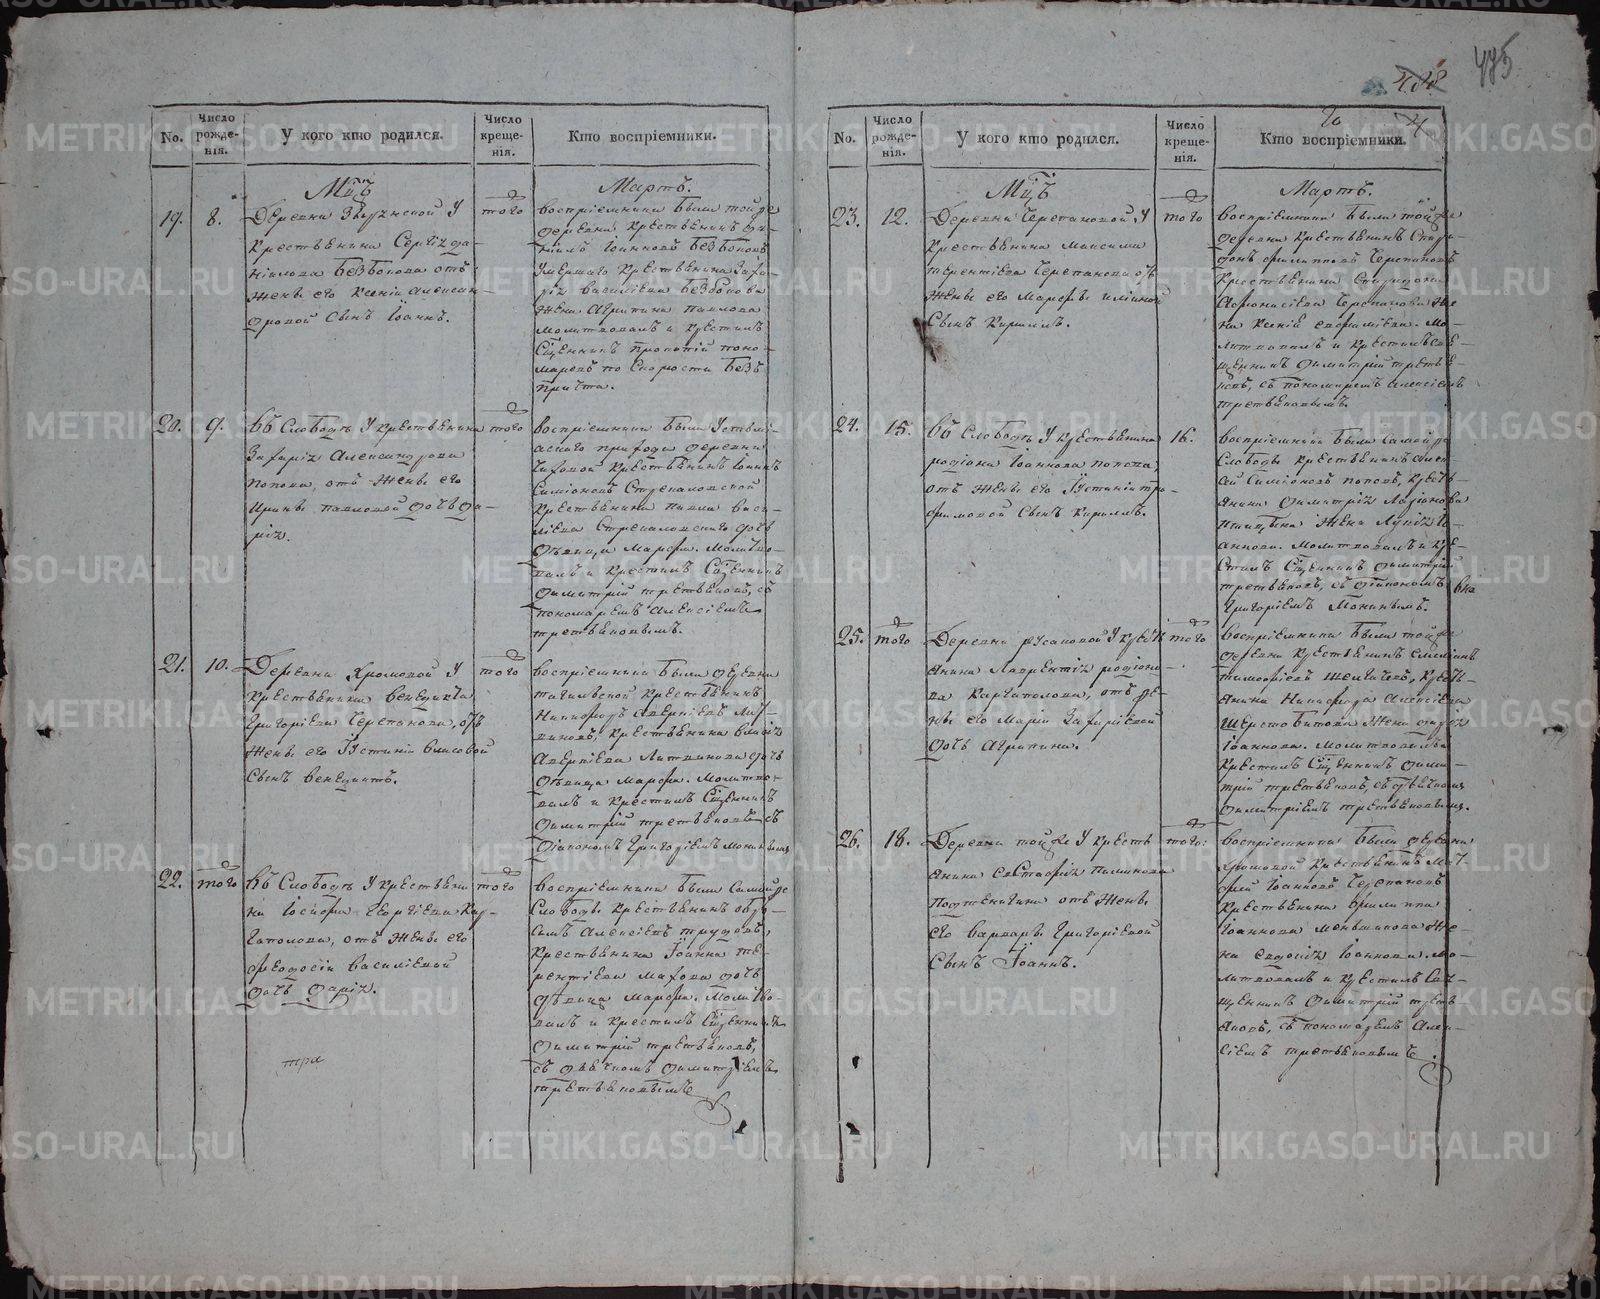 445
No.
Число рожде-нія.
У кого кто родился.
Число креще-нія.
Кто воспріемники.
Мцъ
Мартъ.
19.
8.
Деревни
У
крестьянина Сергія Да-
ніилова Безбокова отъ
жены его Ксеніи Алексан-
дровой сынъ Іоаннъ.
того
воспріемники были той же
деревни крестьянинъ Да-
ніилъ Іоанновъ Безбоковъ
умершаго крестьянина Заха-
рія Василіева Безбокова
жена Агрипина Павлова
молитвовалъ и крестилъ
Сщенникъ Прокопій Поно-
маревъ по скорости безъ
причта.
20.
9.
въ Слободѣ у крестьянина
Захаріи Александрова
Попова, отъ жены его
Ирины Павловой дочь Да-
рія.
того
воспріемники были
прихода деревни
крестьянинъ Іоаннъ
Симіоновъ
крестьянина Павла Васи-
ліева
дочь
дѣвица Марфа. Молитво-
валъ и крестилъ Сщенникъ
Димитрій Третьяковъ, съ
пономаремъ Алексіемъ
Третьяковымъ.
21.
10.
Деревни Хромовой у
крестьянина Венедикта
Григоріева Черепанова, отъ
жены его Іустиніи Власовой
сынъ Венедиктъ.
того
воспріемники были деревни
крестьянинъ
Никифоръ Аверкіевъ Лит-
виновъ, крестьянина Власія
Аверкіева Литвинова дочь
дѣвица Марфа. Молитво-
валъ и крестилъ Сщенникъ
Димитрій Третьяковъ съ
діакономъ Григоріемъ
22.
того
Въ Слободѣ у крестьяни-
на Іосифа Георгіева Кар-
гаполова, отъ жены его
Феодосіи Василіевой
дочь Дарія.
тра
того
воспріемники были самой же
Слободы крестьянинъ
Алексіевъ
крестьянина Іоанна Те-
рентіева Махова дочь
дѣвица Марфа. Молитво-
валъ и крестилъ Сщенникъ
Димитрій Третьяковъ,
съ дьячкомъ Димитріемъ
Третьяковымъ
No.
Число рожде-нія.
У кого кто родился.
Число креще-нія.
Кто воспріемники.
Мцъ
Мартъ.
23.
12.
Деревни Черепановой у
крестьянина Максима
Терентіева Черепанова отъ
жены его Марфы Иліиной
сынъ Кириллъ.
того
воспріемники были той же
деревни крестьянинъ Спири-
донъ Филипповъ Черепановъ
крестьянина Спиридона
Афонасіева Черепанова же-
на Ксенія Ефимова. Мо-
литвовалъ и крестилъ Свя-
щенникъ Димитрій Третья-
ковъ, съ пономаремъ Алексіемъ
Третьяковымъ.
24.
15.
въ Слободѣ у крестьянина
Родіона Іоаннова Попова,
отъ жены его Іустиніи Тро-
фимовой сынъ Кириллъ.
16.
воспріемники были самой же
Слободы крестьянинъ Алек-
сій Симіоновъ Поповъ, кресть-
янина Димитрія
жена Лукія Іо-
аннова. Молитвовалъ и кре-
стилъ Сщенникъ Димитрій
Третьяковъ, съ діакономъ
Григоріемъ
25.
того
Деревни Русаковой у кресть-
янина Лаврентія Родіоно-
ва Каргаполова, отъ же-
ны его Маріи Захаріевой
дочь Агрипина.
того
воспріемники были той же
деревни крестьянинъ
Тимофіевъ
кресть-
янина Никифора Алексіева
Шерстобитова жена
Іоаннова. Молитвовалъ и
крестилъ Сщенникъ Дими-
трій Третьяковъ, съ дьячкомъ
Димитріемъ Третьяковымъ.
26.
18.
Деревни той же у кресть-
янина Евстафія
отъ жены
его Варвары Григоріевой
сынъ Іоаннъ.
того.
воспріемники были деревни
Хромовой крестьянинъ Мат-
фей Іоанновъ Черепановъ
крестьянина Филиппа
Іоаннова Меньшикова же-
на Евдокія Іоаннова. Мо-
литвовалъ и крестилъ Свя-
щенникъ Димитрій Треть-
яковъ, съ пономаремъ Алек-
сіемъ Третьяковымъ.
METRIKI.GASO-URAL.RU